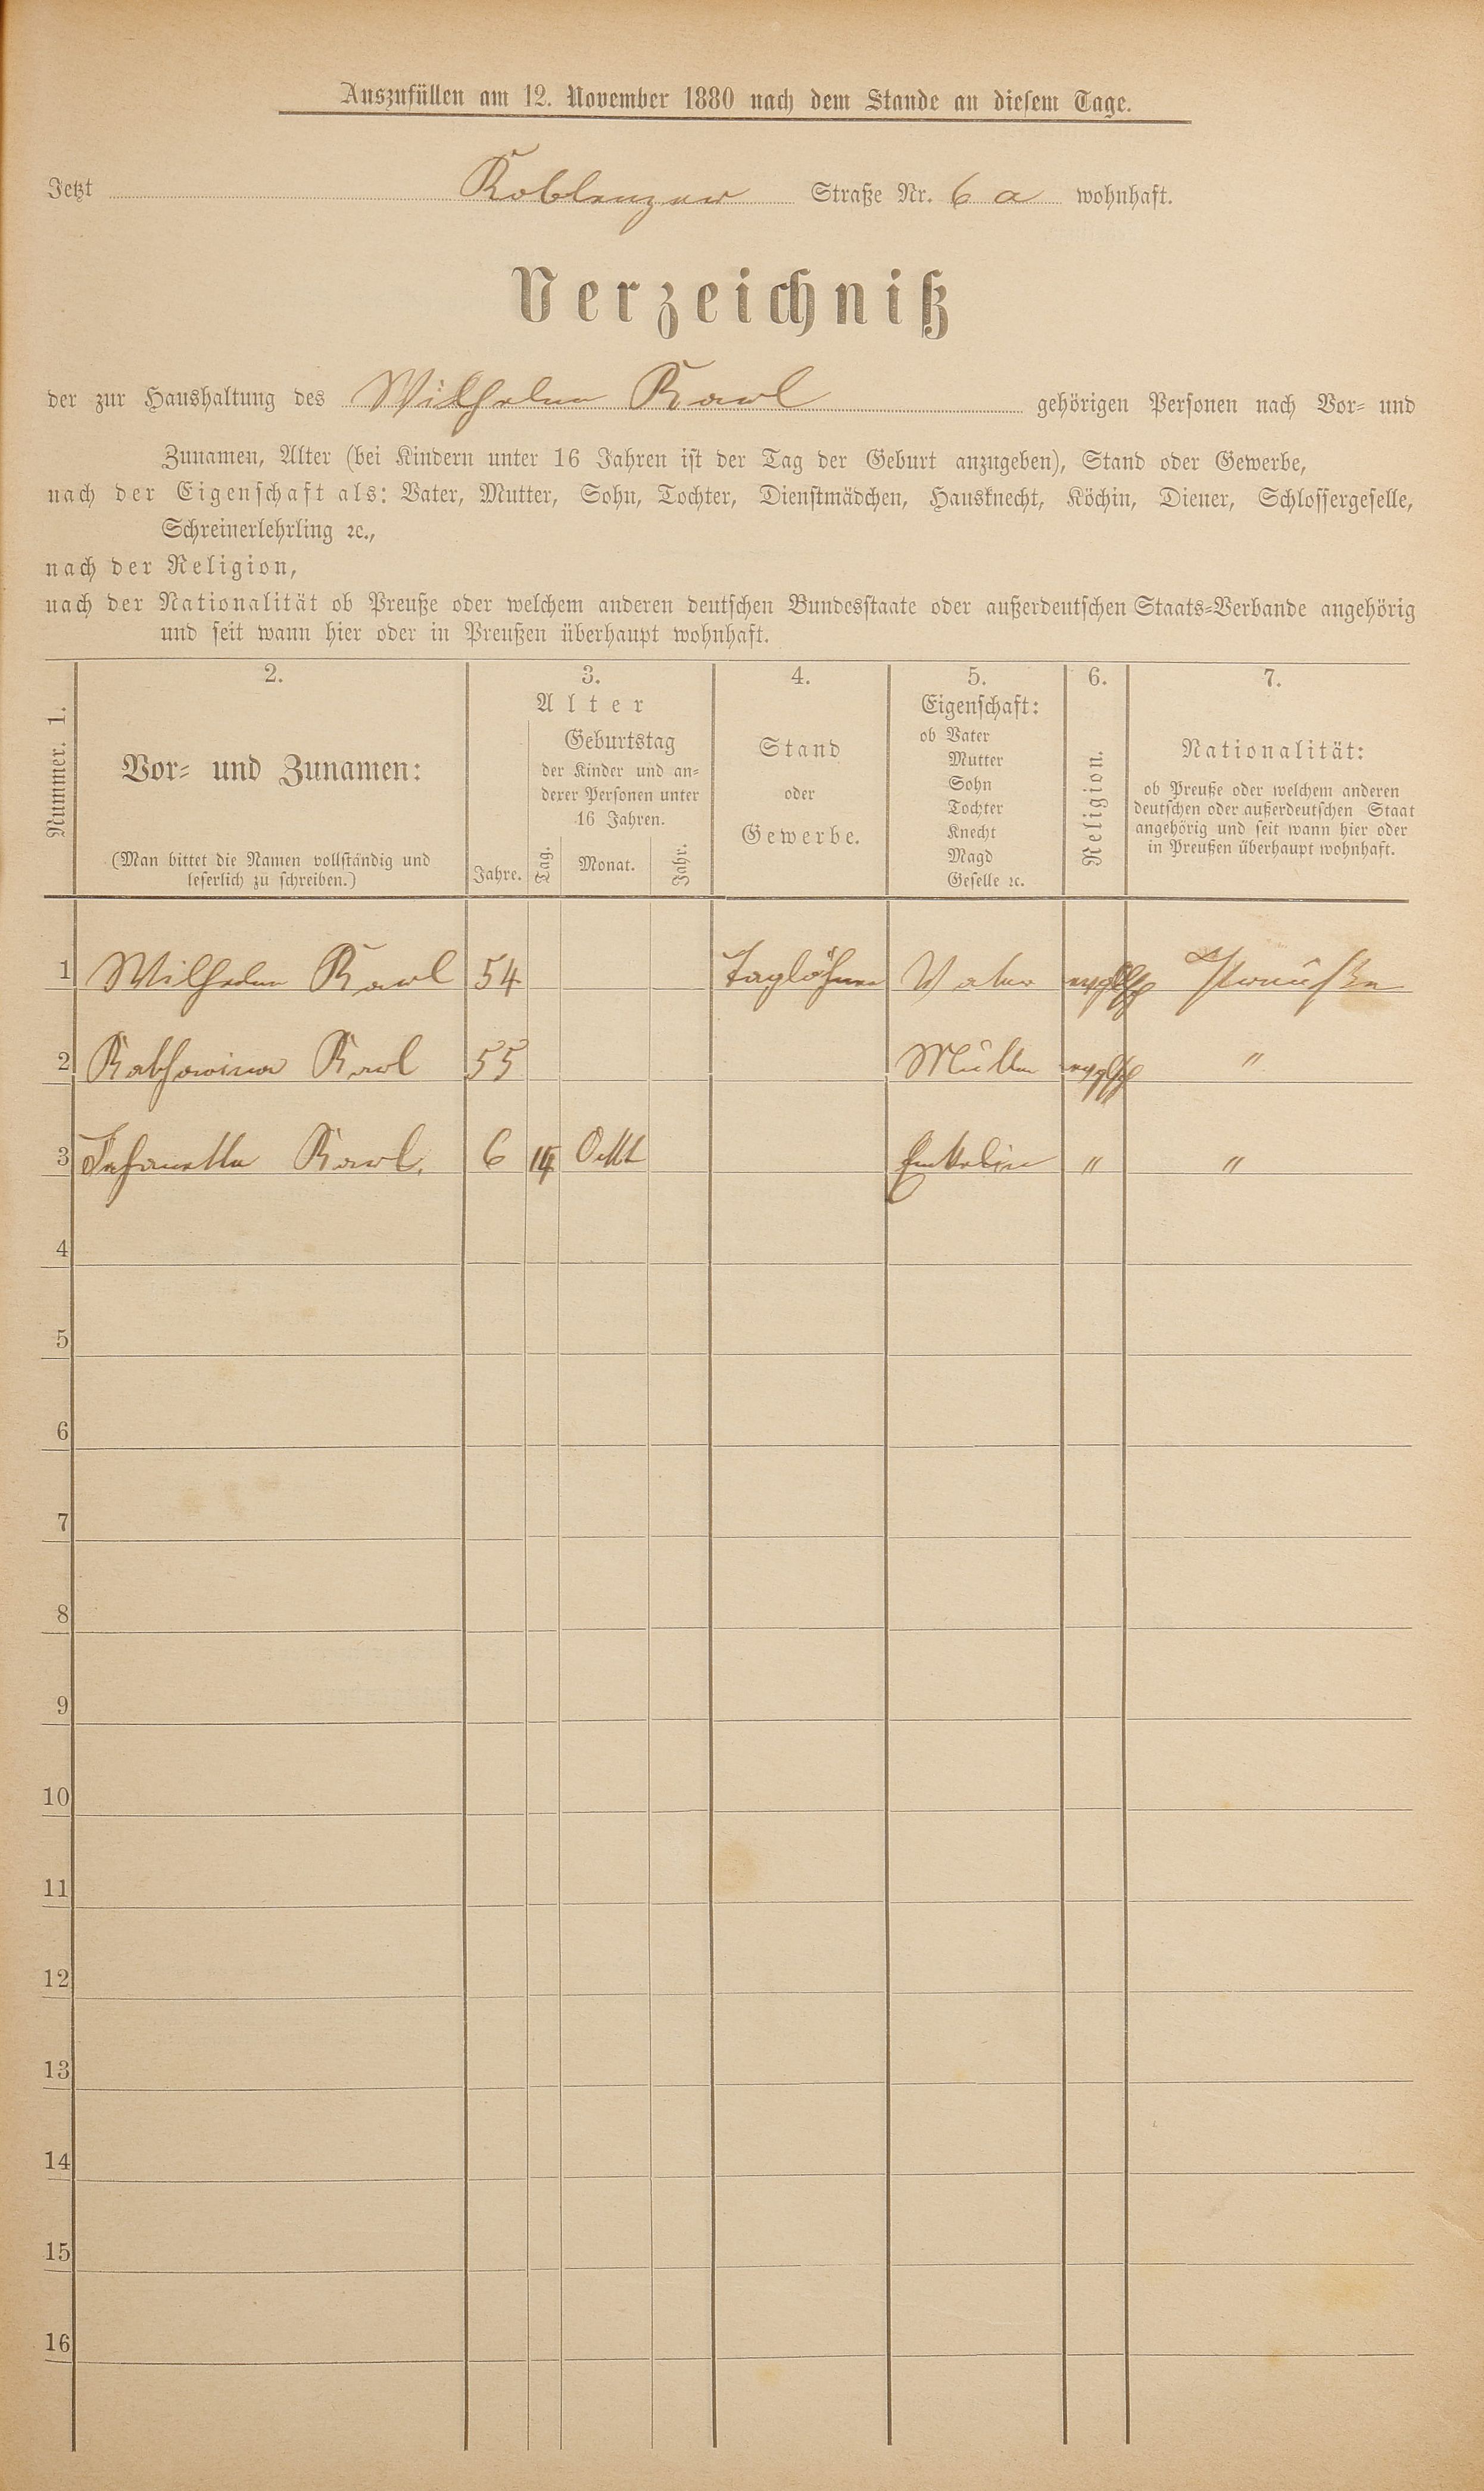 Auszufüllen am 12. November 1880 nach dem Stande an diesem Tage.
Jetzt Koblenzer Straße Nr. 6 a wohnhaft.
Verzeichniß
der zur Haushaltung des Wilhelm Karl gehörigen Personen nach Vor- und
Zunamen, Alter (bei Kindern unter 16 Jahren ist der Tag der Geburt anzugeben), Stand oder Gewerbe,
nach der Eigenschaft als: Vater, Mutter, Sohn, Tochter, Dienstmädchen, Hausknecht, Köchin, Diener, Schlossergeselle,
Schreinerlehrling ꝛc.,
nach der Religion,
nach der Nationalität ob Preuße oder welchem anderen deutschen Bundesstaate oder außerdeutschen Staats-Verbande angehörig
und seit wann hier oder in Preußen überhaupt wohnhaft.
Nummer. 1.
2.
Vor- und Zunamen:
(Man bittet die Namen vollständig und
leserlich zu schreiben.)
3.
Alter
Jahre.
Geburtstag
der Kinder und an-
derer Personen unter
16 Jahren.
Tag. Monat. Jahr.
4.
Stand
oder
Gewerbe.
5.
Eigenschaft:
ob Vater
Mutter
Sohn
Tochter
Knecht
Magd
Geselle ꝛc.
6.
Religion.
7.
Nationalität:
ob Preuße oder welchem anderen
deutschen oder außerdeutschen Staat
angehörig und seit wann hier oder
in Preußen überhaupt wohnhaft.
1 Wilhelm Karl 54 Taglöhner Vater Preußen
2 Katharina Karl 55 Mutter "
3 Karl. 6 14 Ockt Enkelin " "
4
5
6
7
8
9
10
11
12
13
14
15
16